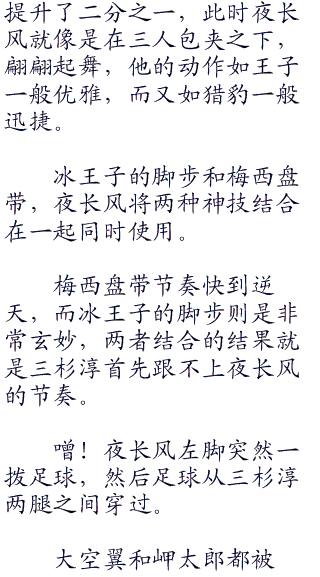 提升了二分之一，此时夜长
风就像是在三人包夹之下，
翩翩起舞，他的动作如王子
一般优雅，而又如猎豹一般
迅捷。
冰王子的脚步和梅西盘
带，夜长风将两种神技结合
在一起同时使用。
梅西盘带节奏快到逆
天，而冰王子的脚步则是非
常玄妙，两者结合的结果就
是三杉淳首先跟不上夜长风
的节奏。
噌！夜长风左脚突然一
拨足球，然后足球从三杉淳
两腿之间穿过。
大空翼和岬太郎都被